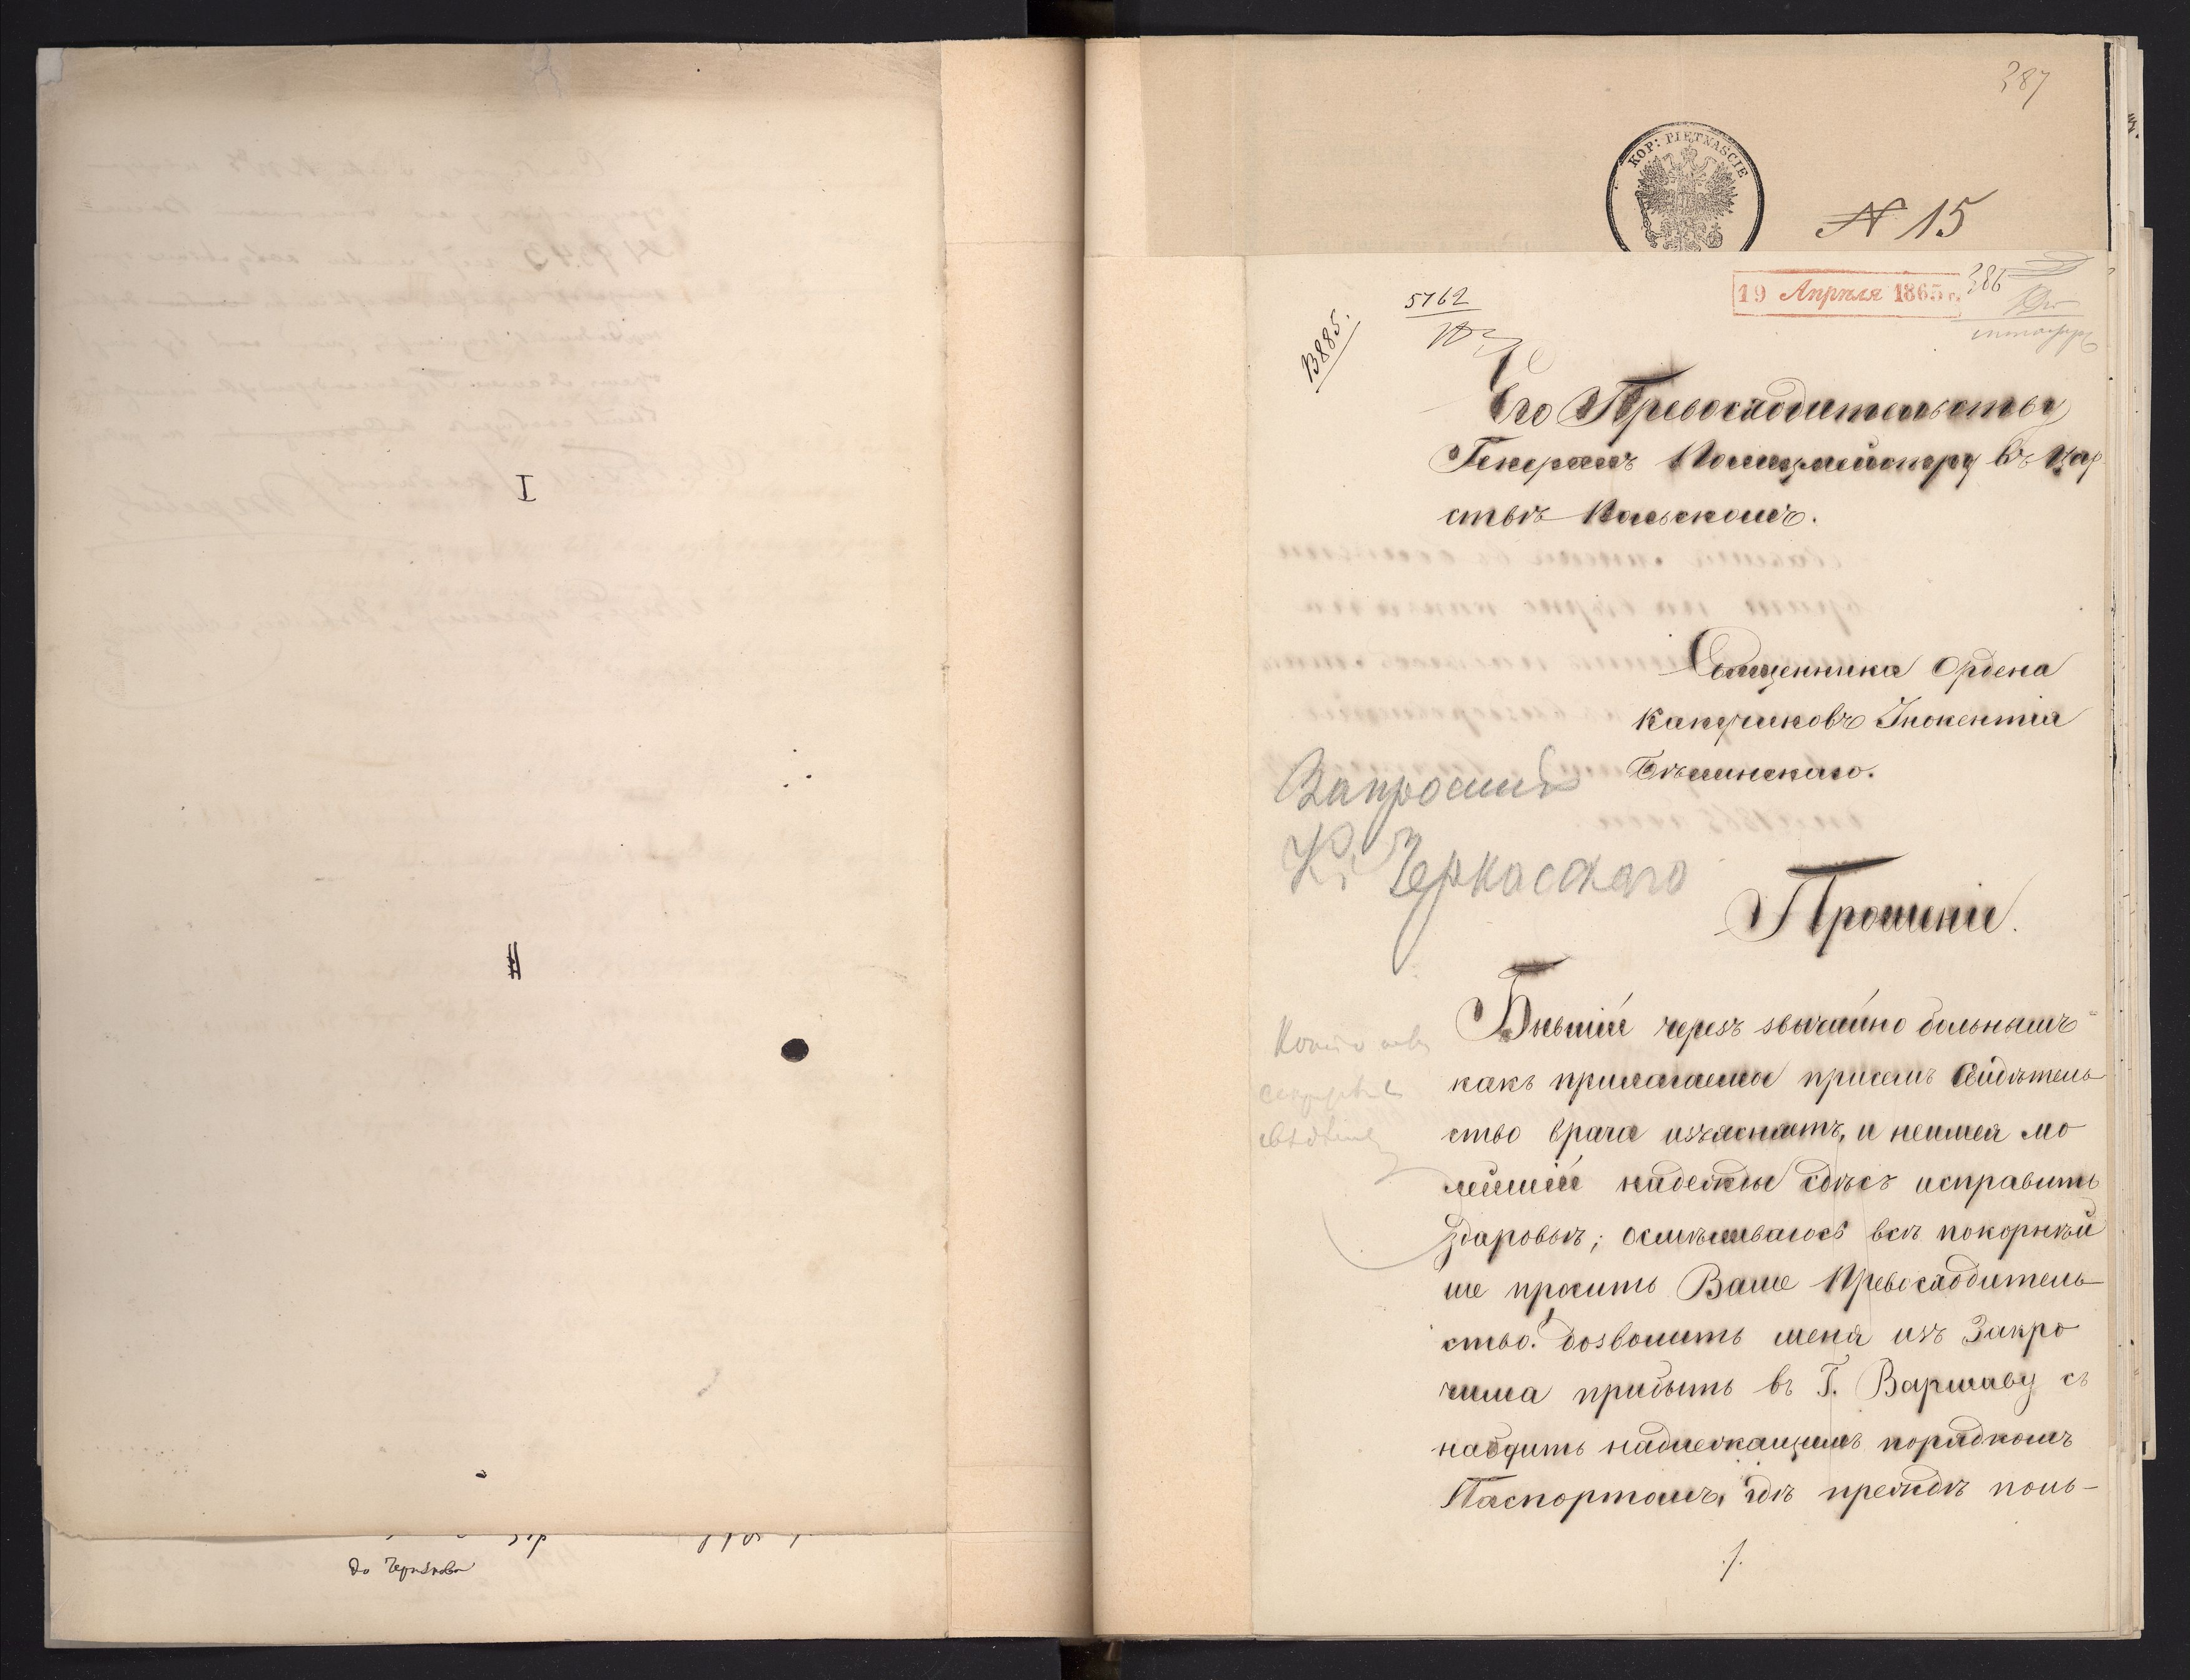 I
II
до Чернова
287
KOP: PIĘTNAŚCIE
N 15
19 Апрѣля 1865 г.
286
5762
13885.
Его Превосходительству
Генералъ Полицмейстеру въ Цар
ствѣ Польскомъ.
Священника Ордена
Капуциновъ Инокентія
Бѣлинскаго.
Запросить
К. Черкасскаго
Прошеніе.
Бывшій черезъ звычайно больнымъ
какъ прилагаемое присемъ свидѣтель
ство врача изъясняетъ, и неимея мо
лѣйшій надежды сдѣсъ исправить
здаровьѣ; осмѣливаюсь всѣ покорнѣй
ше просить Ваше Превосходитель
ство: дозволить меня изъ Закро
чима прибыть въ Г. Варшаву с
набдить надлежащимъ порядкомъ
Паспортомъ, гдѣ преждѣ поль-
./.